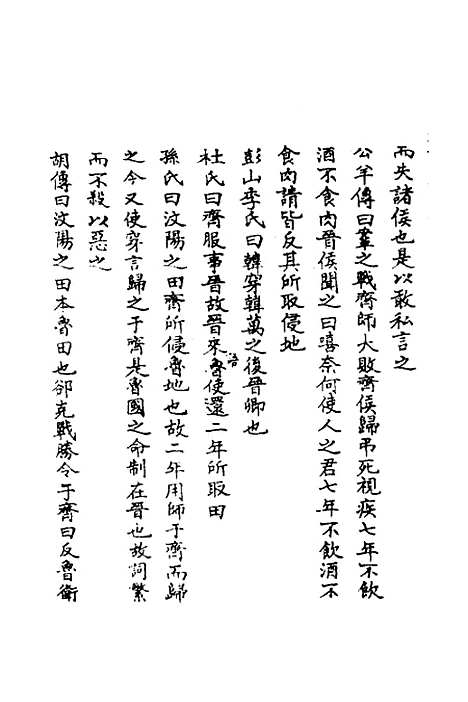 而失諸侯也是以敢私言之
公羊傳曰鞌之戰齊師大敗齊侯歸弔死視疾七年不飲
酒不食肉晉侯聞之曰嘻奈何使人之君七年不飲酒不
食肉請皆反其所取侵地
彭山季氏曰韓穿韓萬之後晉卿也
杜氏曰齊服事晉故晉來語魯使還二年所取田
孫氏曰汶陽之田齊所侵魯地也故二年用師于齊而歸
之今又使穿言歸之于齊是魯國之命制在晉也故詞繁
而不殺以惡之
胡傳曰汶陽之田本魯田也郤克戰勝令于齊曰反魯衛